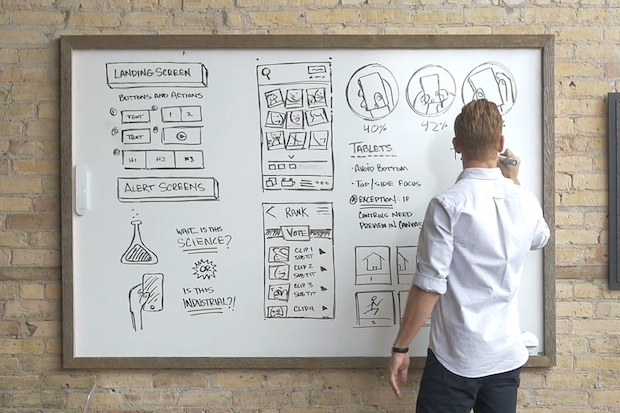 LANDING SCREEN
BUTTONS AND ACTIONS
TEXT 1 2
TEXT
H1 H2 #3
ALERT SCREENS
WAIT.. IS THIS
SCIENCE?
OR
IS THIS
INDUSTRIAL?!
RANK
VOTE
CLIP 1
SUBTIT
CLIP 2
SUBTIT
CLIP 3
SUBTIT
CLIP 4
40%
42%
TABLETS
• AVOID BOTTOM
• TOP/SIDE FOCUS
EXCEPTION: IF
CONTROLS NEED
PREVIEW IN CANVAS
1
3